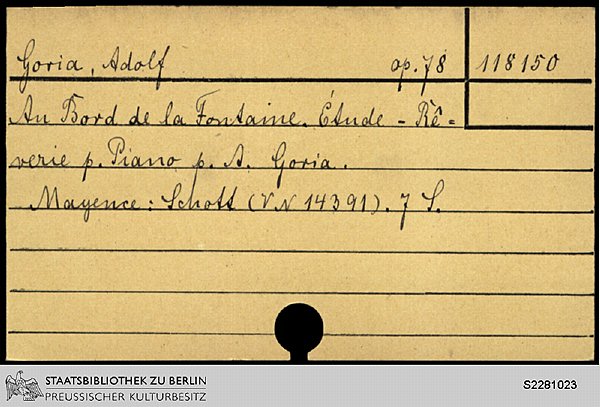 Goria, Adolf op. 78 118150
Au Bord de la Fontaine. Étude - Rê=
verie p. Piano p. A. Goria.
Mayence: Schott (VN 14391). 7 S.
STAATSBIBLIOTHEK ZU BERLIN
PREUSSISCHER KULTURBESITZ
S2281023